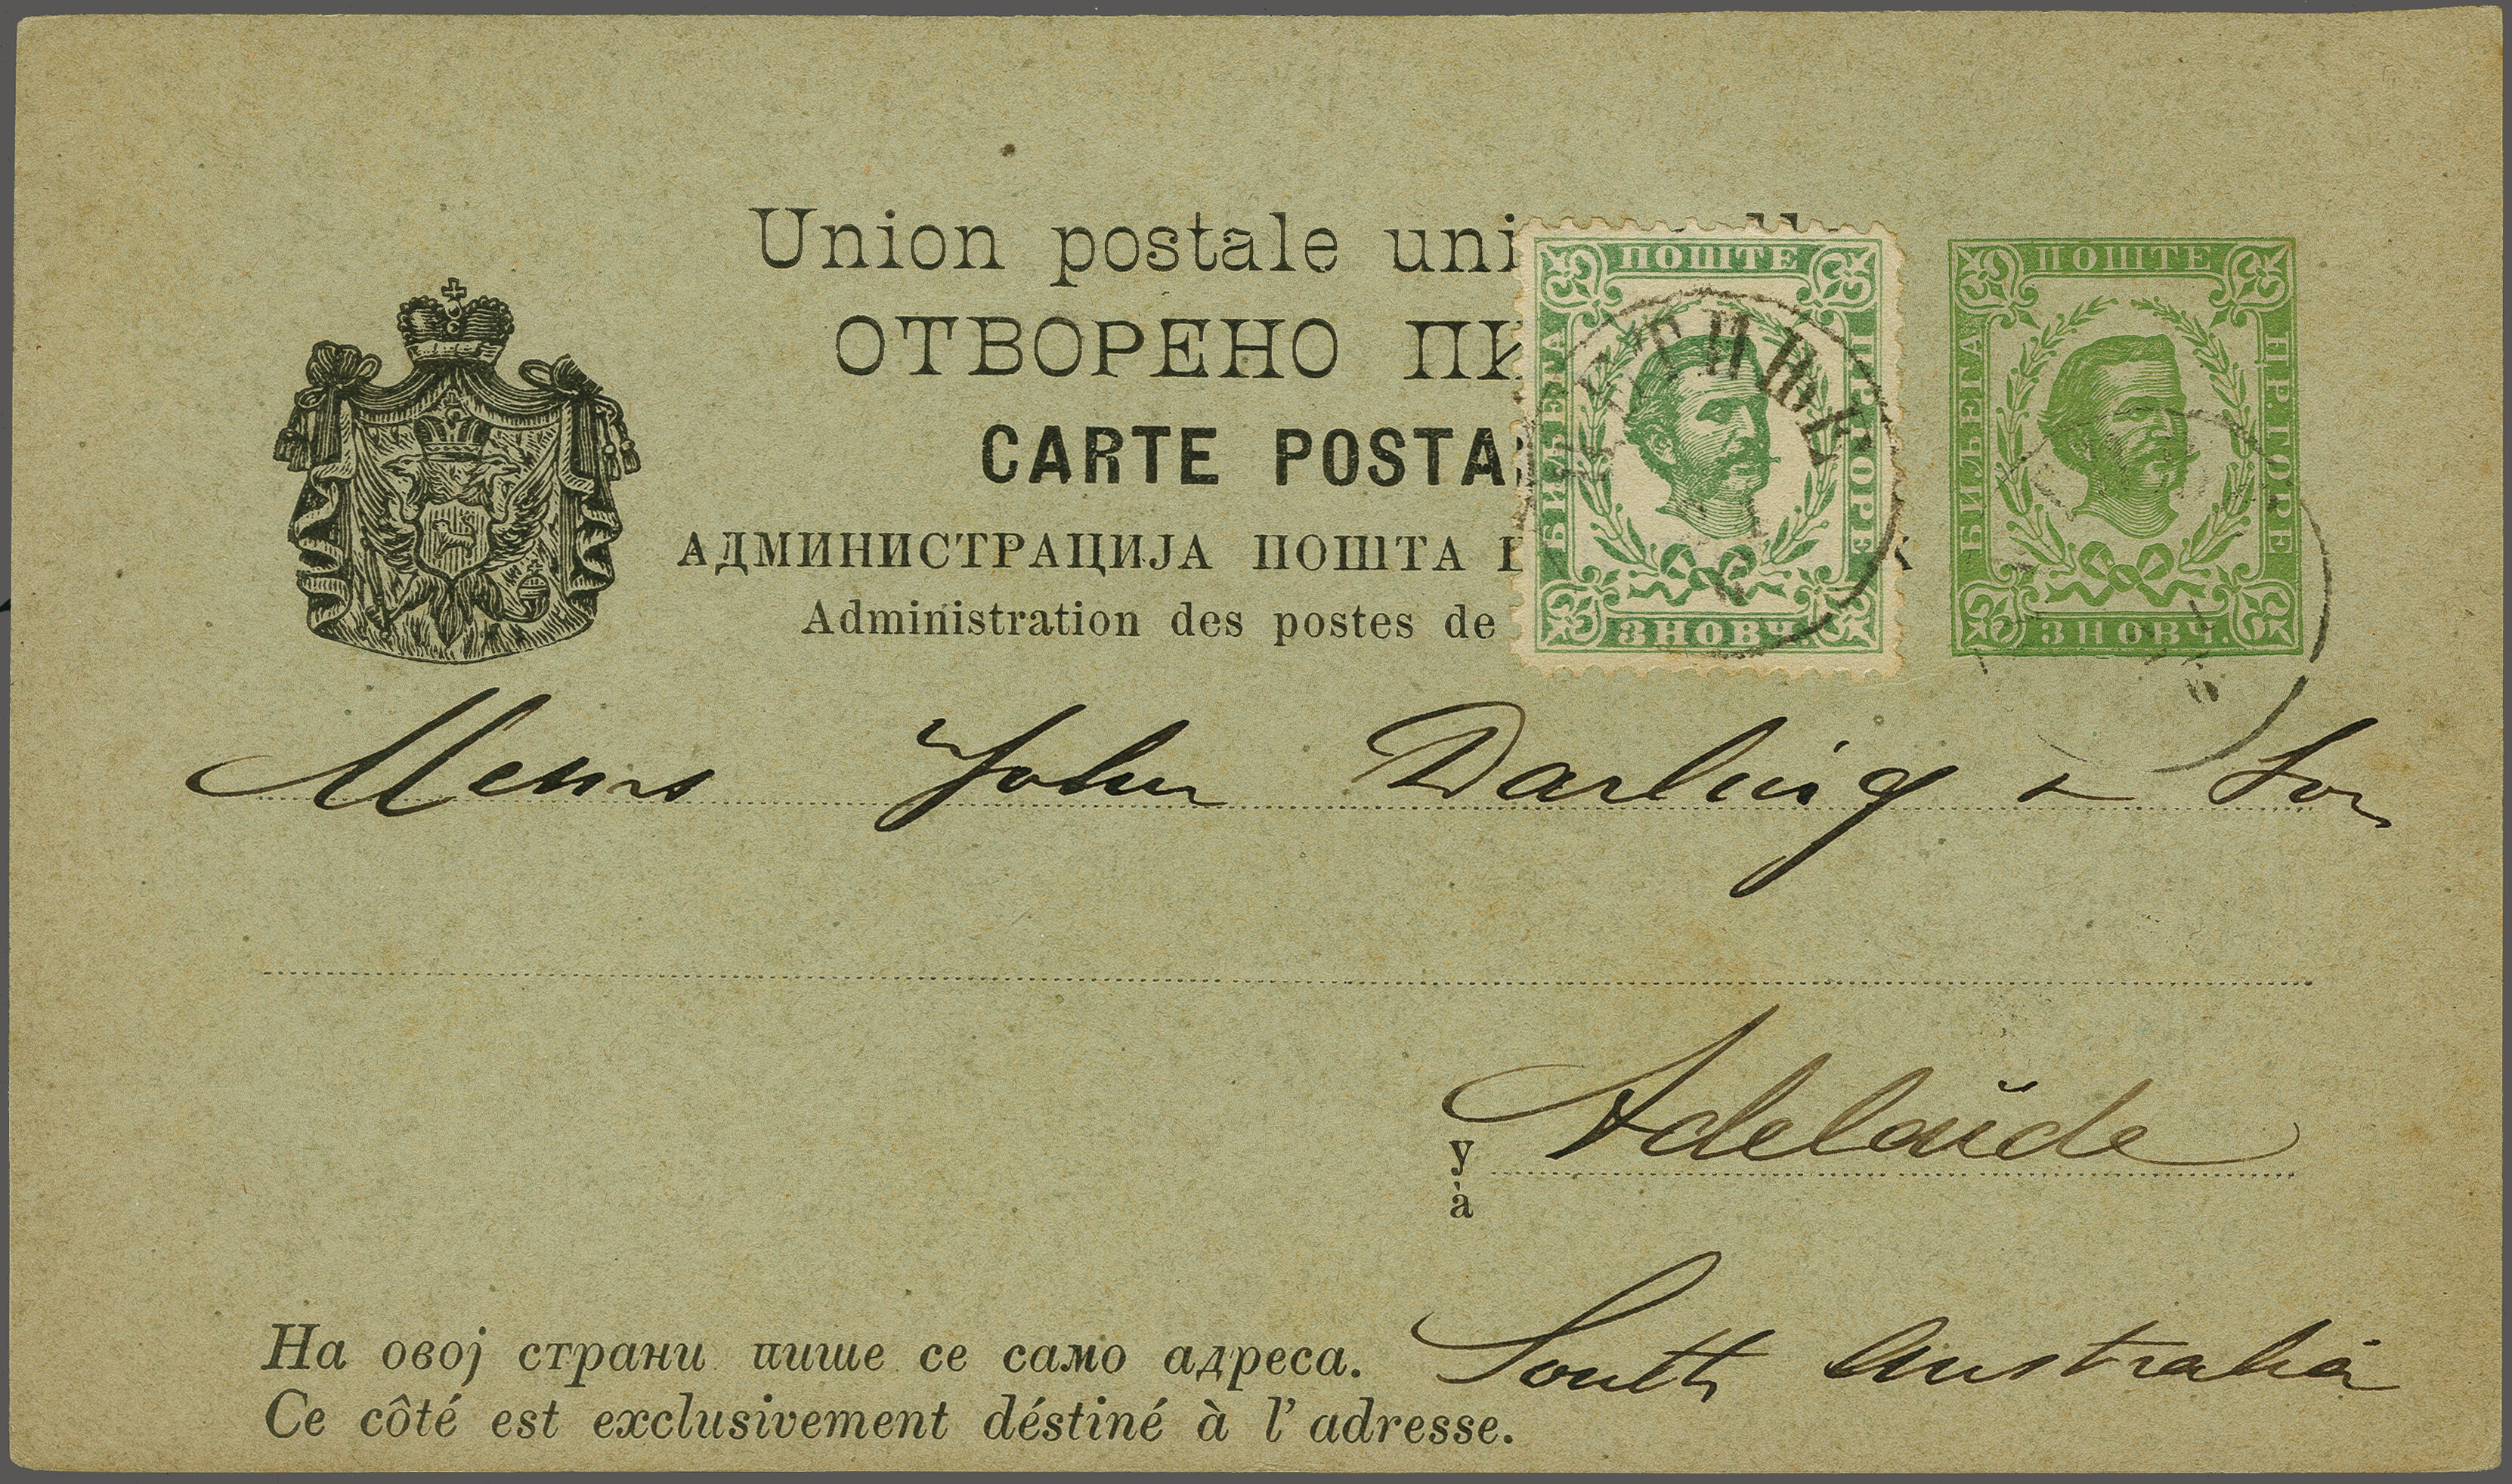 Union postale uni
ОТВОРЕНО ПИ
CARTE POSTA
АДМИНИСТРАЦИЈА ПОШТА
Administration des postes de
ПОШТЕ
БИЉЕГА
ЦР. ГОРЕ
3 НОВЧ.
ЦЕТИЊЕ
ПОШТЕ
БИЉЕГА
ЦР. ГОРЕ
3 НОВЧ.
Messrs John Darling & Son
у Adelaide
à
South Australia
На овој страни пише се само адреса.
Ce côté est exclusivement déstiné à l' adresse.